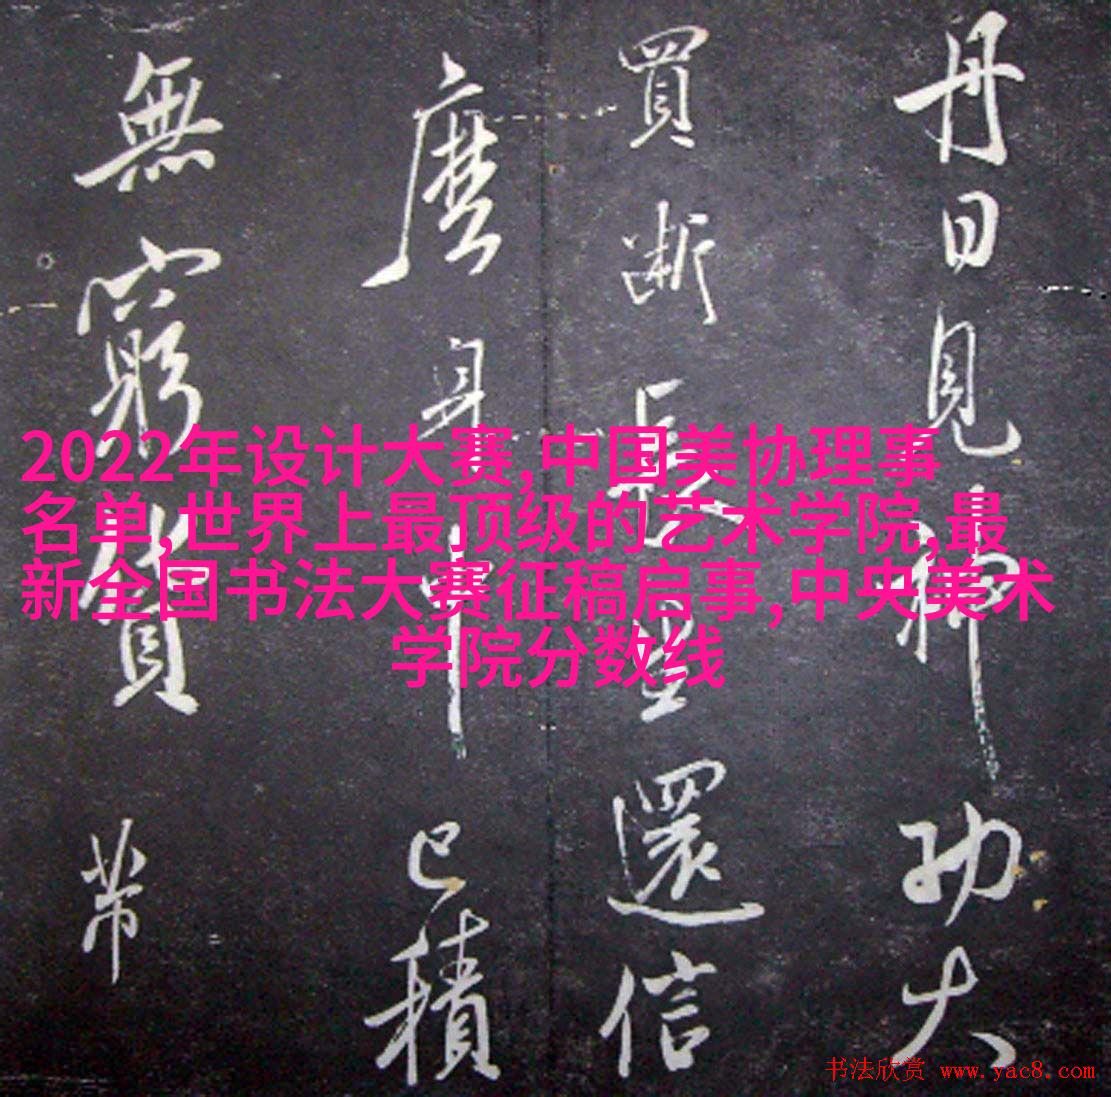 丹日見神功大
買斷長還信
麼身中已積
無窮貨帶
2022年设计大赛,中国美协理事
名单,世界上最顶级的艺术学院,最
新全国书法大赛征稿启事,中央美术
学院分数线
书法欣赏 www.yac8.com